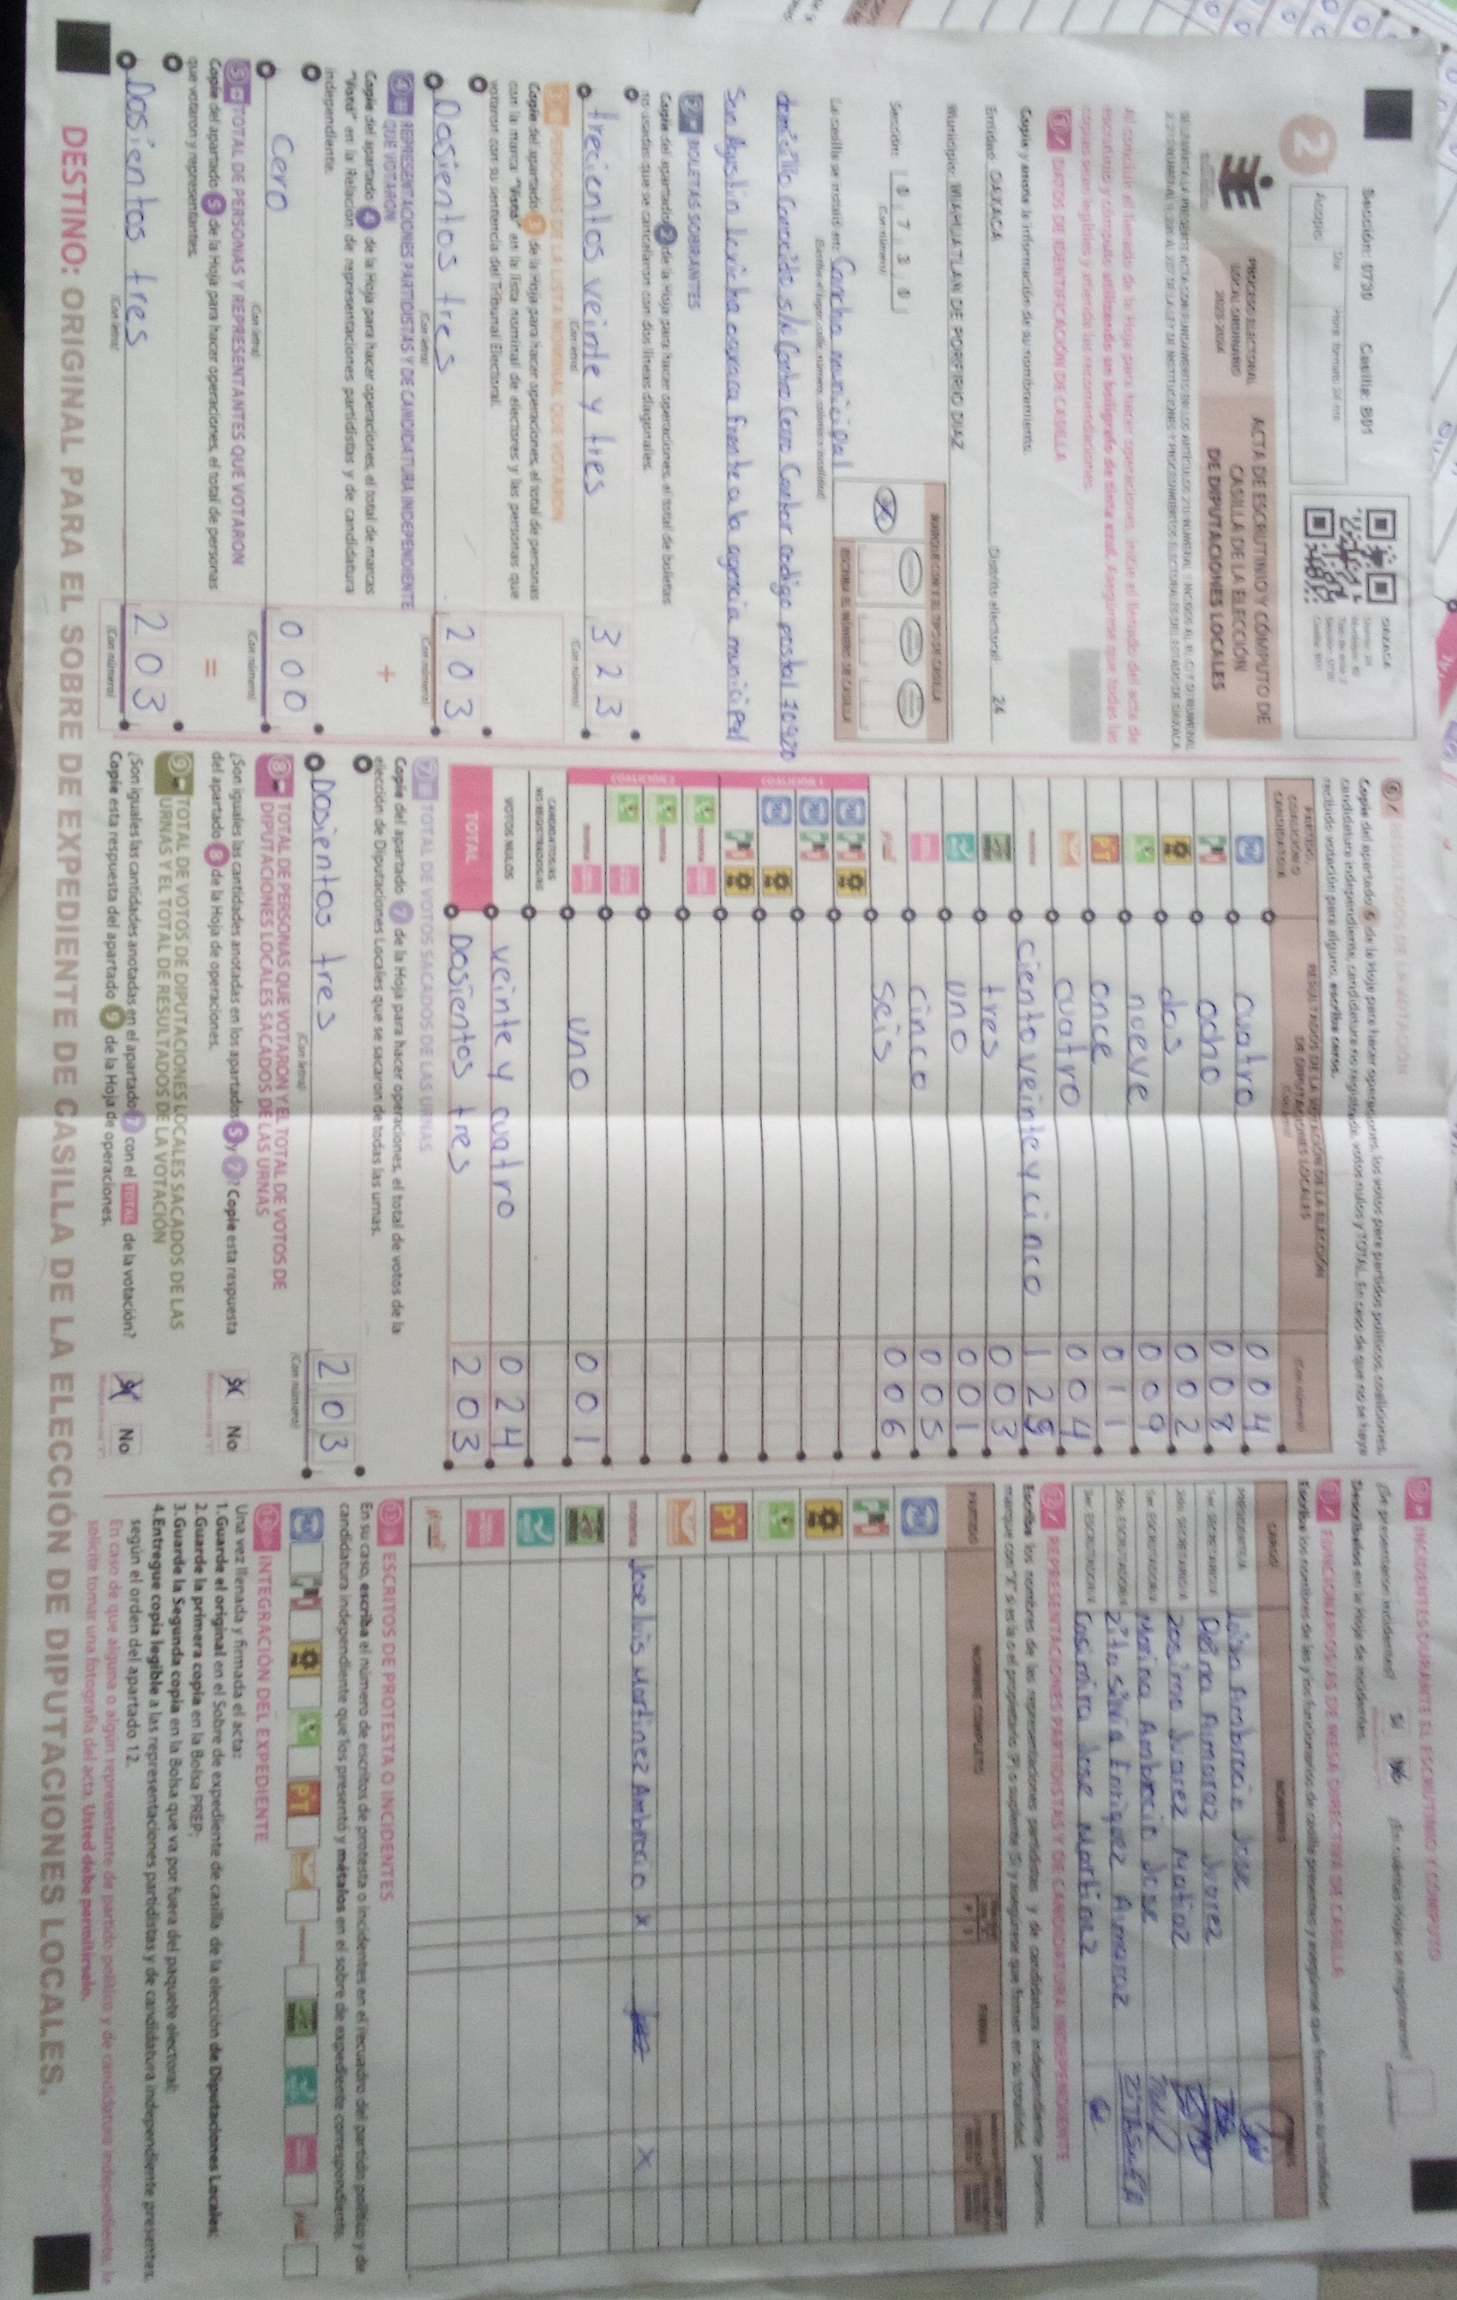 Sección: 0730 Casilla: B01
OAXACA
2
Acopio
PROCESO ELECTORAL
LOCAL ORDINARIO
2023-2024
ACTA DE ESCRUTINIO Y CÓMPUTO DE
CASILLA DE LA ELECCIÓN
DE DIPUTACIONES LOCALES
Al concluir el llenado de la Hoja para hacer operaciones, iniciar el llenado del acta de
escrutinio y cómputo utilizando un bolígrafo de tinta azul. Asegúrese que todas las
copias sean legibles y atienda las recomendaciones.
1 DATOS DE IDENTIFICACIÓN DE CASILLA
Copie y anote la información de su nombramiento.
Entidad: OAXACA Distrito electoral: 24
Municipio: MIAHUATLAN DE PORFIRIO DIAZ
Sección: 0 7 3 0
(Con número)
MARQUE CON X EL TIPO DE CASILLA
ESCRIBA EL NÚMERO DE CASILLA
La casilla se instaló en: Cancha municipal
(Escriba el lugar, calle, número, colonia o localidad)
San Agustin Loxicha oaxaca frente a la agencia municipal
2 BOLETAS SOBRANTES
Copie del apartado 2 de la Hoja para hacer operaciones, el total de boletas
no usadas que se cancelaron con dos líneas diagonales.
trecientos veinte y tres 3 2 3
(Con letra) (Con número)
3 PERSONAS DE LA LISTA NOMINAL QUE VOTARON
Copie del apartado 3 de la Hoja para hacer operaciones, el total de personas
con la marca "Votó" en la lista nominal de electores y las personas que
votaron con su sentencia del Tribunal Electoral.
Dosientos tres 2 0 3
(Con letra) (Con número)
4 REPRESENTACIONES PARTIDISTAS Y DE CANDIDATURA INDEPENDIENTE
QUE VOTARON +
Copie del apartado 4 de la Hoja para hacer operaciones, el total de marcas
"Votó" en la Relación de representaciones partidistas y de candidatura
independiente.
Cero 0 0 0
(Con letra) (Con número)
5 TOTAL DE PERSONAS Y REPRESENTANTES QUE VOTARON =
Copie del apartado 5 de la Hoja para hacer operaciones, el total de personas
que votaron y representantes.
Dosientos tres 2 0 3
(Con letra) (Con número)
6 RESULTADOS DE LA VOTACIÓN
Copie del apartado 6 de la Hoja para hacer operaciones, los votos para partidos políticos, coaliciones,
candidatura independiente, candidatura no registrada, votos nulos y TOTAL. En caso de que no se haya
recibido votación para alguno, escriba ceros.
RESULTADOS DE LA VOTACIÓN DE LA ELECCIÓN
DE DIPUTACIONES LOCALES
cuatro 0 0 4
ocho 0 0 8
dos 0 0 2
nueve 0 0 9
PT once 0 1 1
cuatro 0 0 4
ciento veinte y cinco 1 2 5
tres 0 0 3
uno 0 0 1
cinco 0 0 5
seis 0 0 6
COALICIÓN 1
COALICIÓN 2
uno 0 0 1
CANDIDATOS/AS
NO REGISTRADOS/AS
VOTOS NULOS veinte y cuatro 0 2 4
TOTAL Dosientos tres 2 0 3
7 TOTAL DE VOTOS SACADOS DE LAS URNAS
Copie del apartado 7 de la Hoja para hacer operaciones, el total de votos de la
elección de Diputaciones Locales que se sacaron de todas las urnas.
Dosientos tres 2 0 3
(Con letra) (Con número)
8 TOTAL DE PERSONAS QUE VOTARON Y EL TOTAL DE VOTOS DE
DIPUTACIONES LOCALES SACADOS DE LAS URNAS
¿Son iguales las cantidades anotadas en los apartados 5 y 7? Copie esta respuesta
del apartado 8 de la Hoja de operaciones. Sí No
9 TOTAL DE VOTOS DE DIPUTACIONES LOCALES SACADOS DE LAS
URNAS Y EL TOTAL DE RESULTADOS DE LA VOTACIÓN
¿Son iguales las cantidades anotadas en el apartado 7 con el TOTAL de la votación?
Copie esta respuesta del apartado 9 de la Hoja de operaciones. Sí No
INCIDENTES DURANTE EL ESCRUTINIO Y CÓMPUTO
¿Se presentaron incidentes? Sí No
Descríbalos en la Hoja de incidentes.
FUNCIONARIOS/AS DE MESA DIRECTIVA DE CASILLA
Zosimo Juarez Matias
Zita Silvia Enriquez Almaraz
Casimira Jose Martinez
REPRESENTACIONES PARTIDISTAS Y DE CANDIDATURA INDEPENDIENTE
PARTIDO NOMBRE COMPLETO FIRMA
PT
morena Jose Luis Martinez Ambrocio X X
ESCRITOS DE PROTESTA O INCIDENTES
En su caso, escriba el número de escritos de protesta o incidentes en el recuadro del partido político y de
candidatura independiente que los presentó y métalos en el sobre de expediente correspondiente.
PT
INTEGRACIÓN DEL EXPEDIENTE
Una vez llenada y firmada el acta:
1.Guarde el original en el Sobre de expediente de casilla de la elección de Diputaciones Locales;
2.Guarde la primera copia en la Bolsa PREP;
3.Guarde la Segunda copia en la Bolsa que va por fuera del paquete electoral;
4.Entregue copia legible a las representaciones partidistas y de candidatura independiente presentes,
según el orden del apartado 12.
En caso de que alguna o algún representante de partido político y de candidatura independiente, le
solicite tomar una fotografía del acta. Usted debe permitírselo.
DESTINO: ORIGINAL PARA EL SOBRE DE EXPEDIENTE DE CASILLA DE LA ELECCIÓN DE DIPUTACIONES LOCALES.